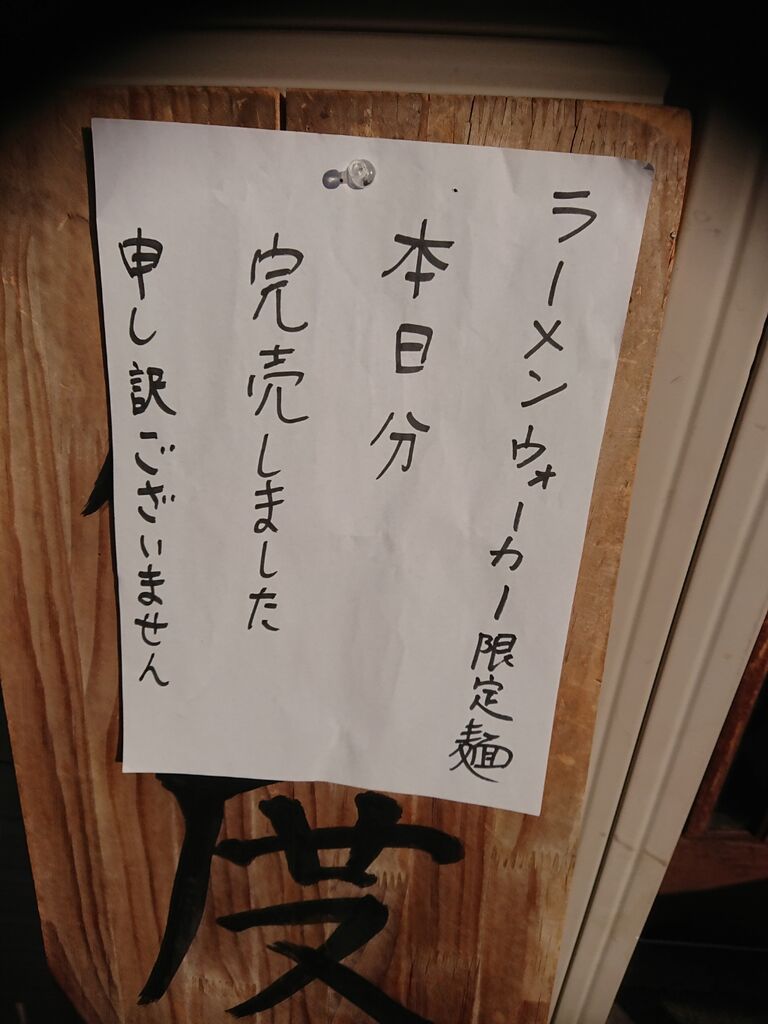 ラーメンウォーカー限定麺
本日分
完売しました
申し訳ございません
度